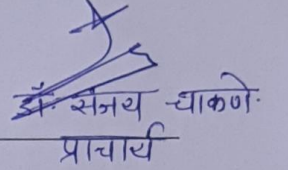 डॉ. संजय चाकणे.
प्राचार्य